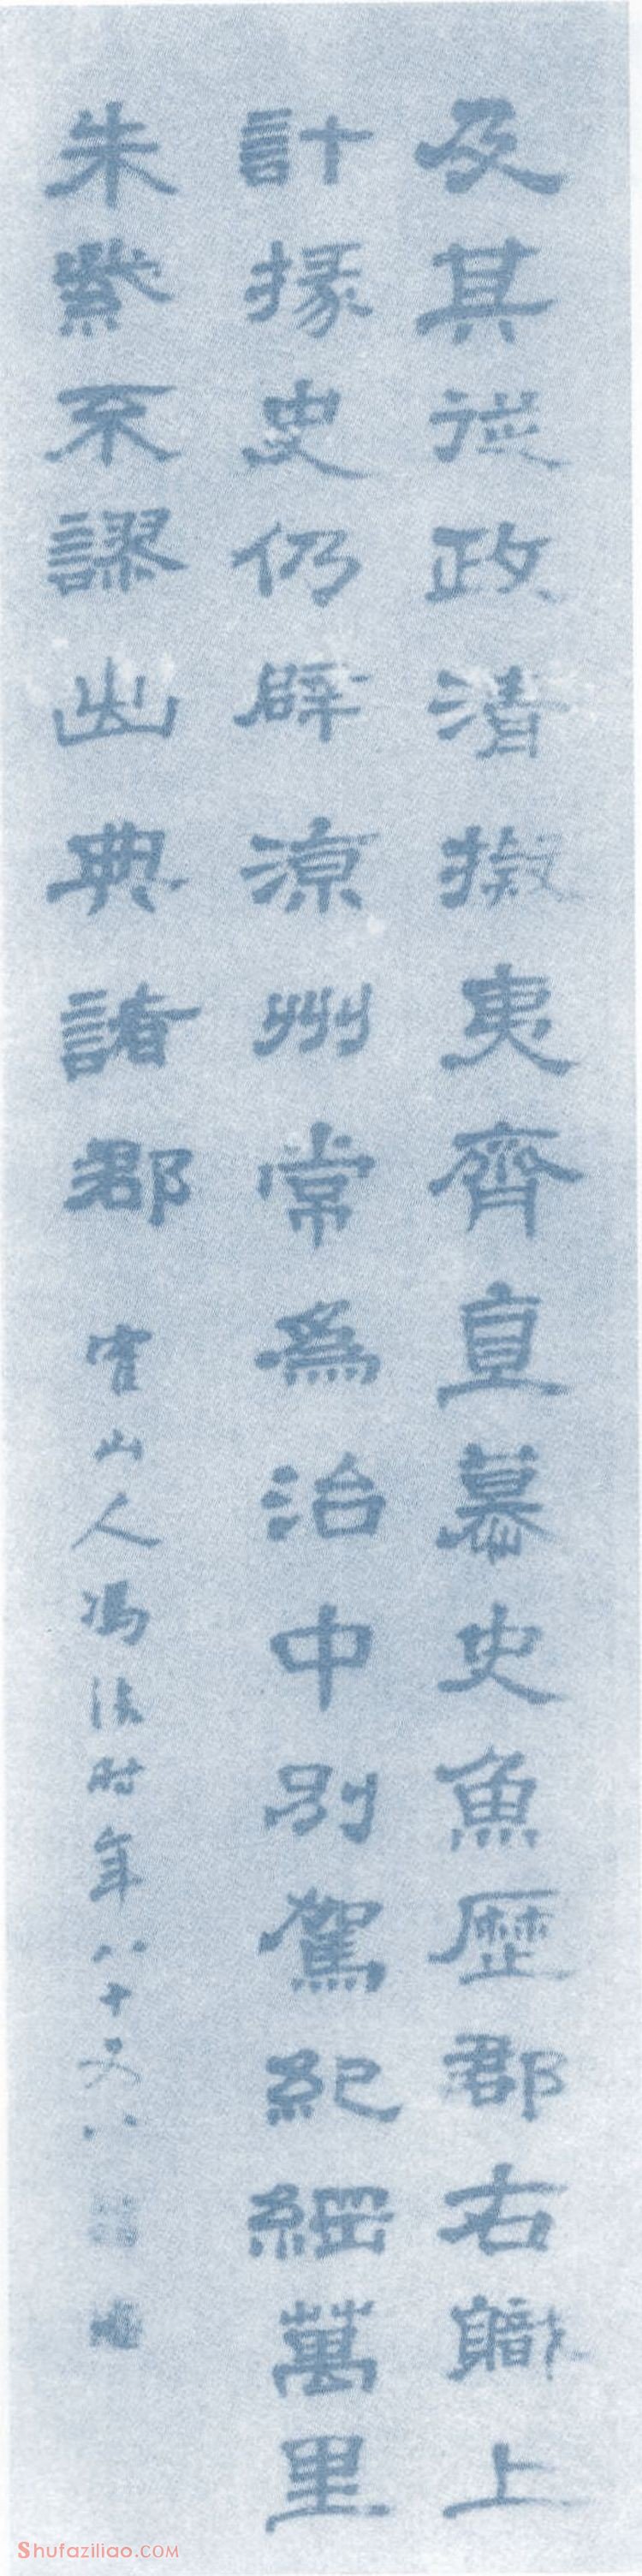 及其從政清擬夷齊直慕史魚歷郡右職上
計掾史仍辟涼州常為治中別駕紀綱萬里
朱紫不謬出典諸郡
霍山人馮法时年八十又八
Shufaziliao.COM